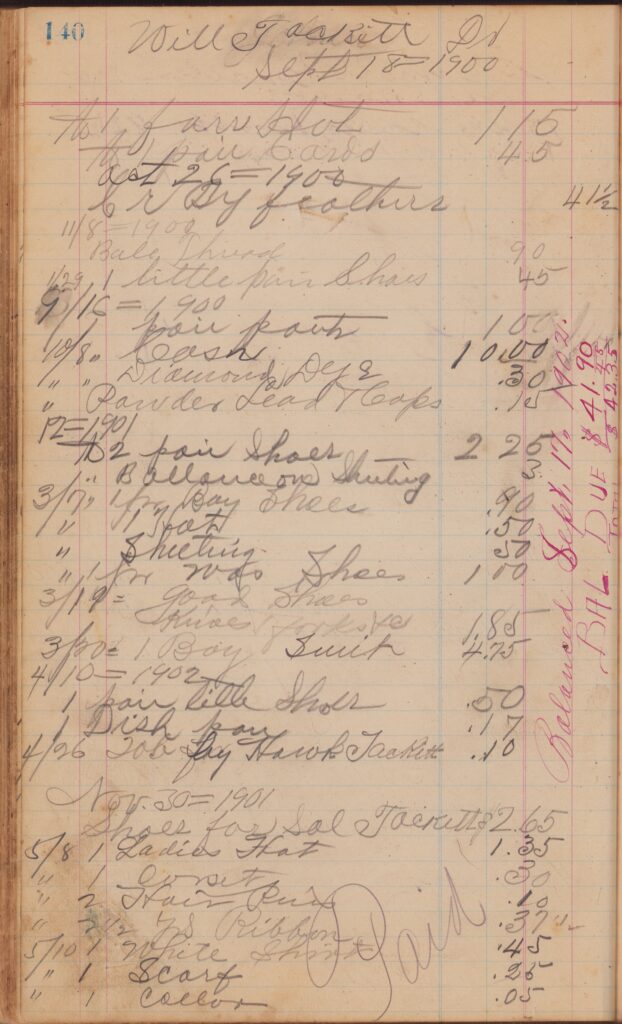 140
Will Tackett Dr
Sept 18=1900
To 1 pair 1 15
To 1 pair Cards 45
Oct 26=1900
Cr By feathers 41 1/2
11/8=1900
Bale Thread 90
1/29 1 little pair Shoes 45
9/16=1900
1 pair pants 1 00
10/8 " Cash 10.00
" " Diamond Dye .30
" Powder Lead & Caps .15
12=1901
To 2 pair Shoes 2 25
" Ballance on Sheeting 3
3/17 " 1 pr Boy Shoes .90
" 1 .50
" Sheeting 50
" 1 pr Shoes 1 00
3/19= Good Shoes
Knives forks &c 1.85
3/20= 1 Boy 4.75
4/10=1902
1 pair little Shoes .50
1 Dish pan .17
4/26 Tob Hawk Tackett .10
Nov. 30=1901
Shoes for Sol Tackett $2.65
5/8 1 Ladies Hat 1.35
" 1 Corset .30
" 2 Hair Pins .10
" 2 1/2 yds Ribbon .37 1/2
5/10 1 White Shirt .45
" 1 Scarf .25
" 1 Collor .05
Paid
Balanced Sept. 17, 1902.
BAL DUE $41.90
.45
$42.35